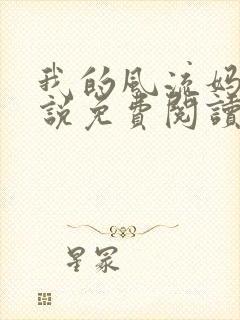 我的风流妈
說免費閱讀
星冢